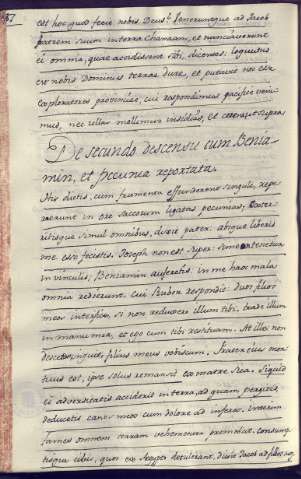 est hoc quod fecit nobis Deus? Veneruntque ad Jacob
patrem suum in terra Chanaam, et nunciaverunt
ei omnia, quae accidissent sibi, dicentes: loquutus
est nobis Dominus terrae dure, et putavit nos esse
exploratores provinciae, cui respondimus pacifici sumus,
nec ullas molimur insidias, et cetera ut supra
De secundo descensu cum Benia
min, et pecunia reportata.
His dictis, cum frumenta effunderent singuli, repe
rerunt in ore saccorum ligatas pecunias, exter
ritisque simul omnibus, dixit pater: absque liberis
me esse fecistis. Joseph non est super: Simeon tenetur
in vinculis, Beniamin auferetis. In me haec mala
omnia redierunt. cui Ruben respondit: duos filios
meos interfice, si non reduxero illum tibi. trade illum
in manu mea, et ego eum tibi restituam. At ille: non
descendet, inquit, filius meus vobiscum. Frater eius mor
tuus est, ipse solus remansit ex matre sua. Si quid
ei adversitatis acciderit in terra, ad quam pergitis,
deducetis canos meos cum dolore ad inferos. interim
fames omnem terram vehementer premebat. consump
tisque cibis, quos ex Aegypto detulerant, dixit Jacob ad filios